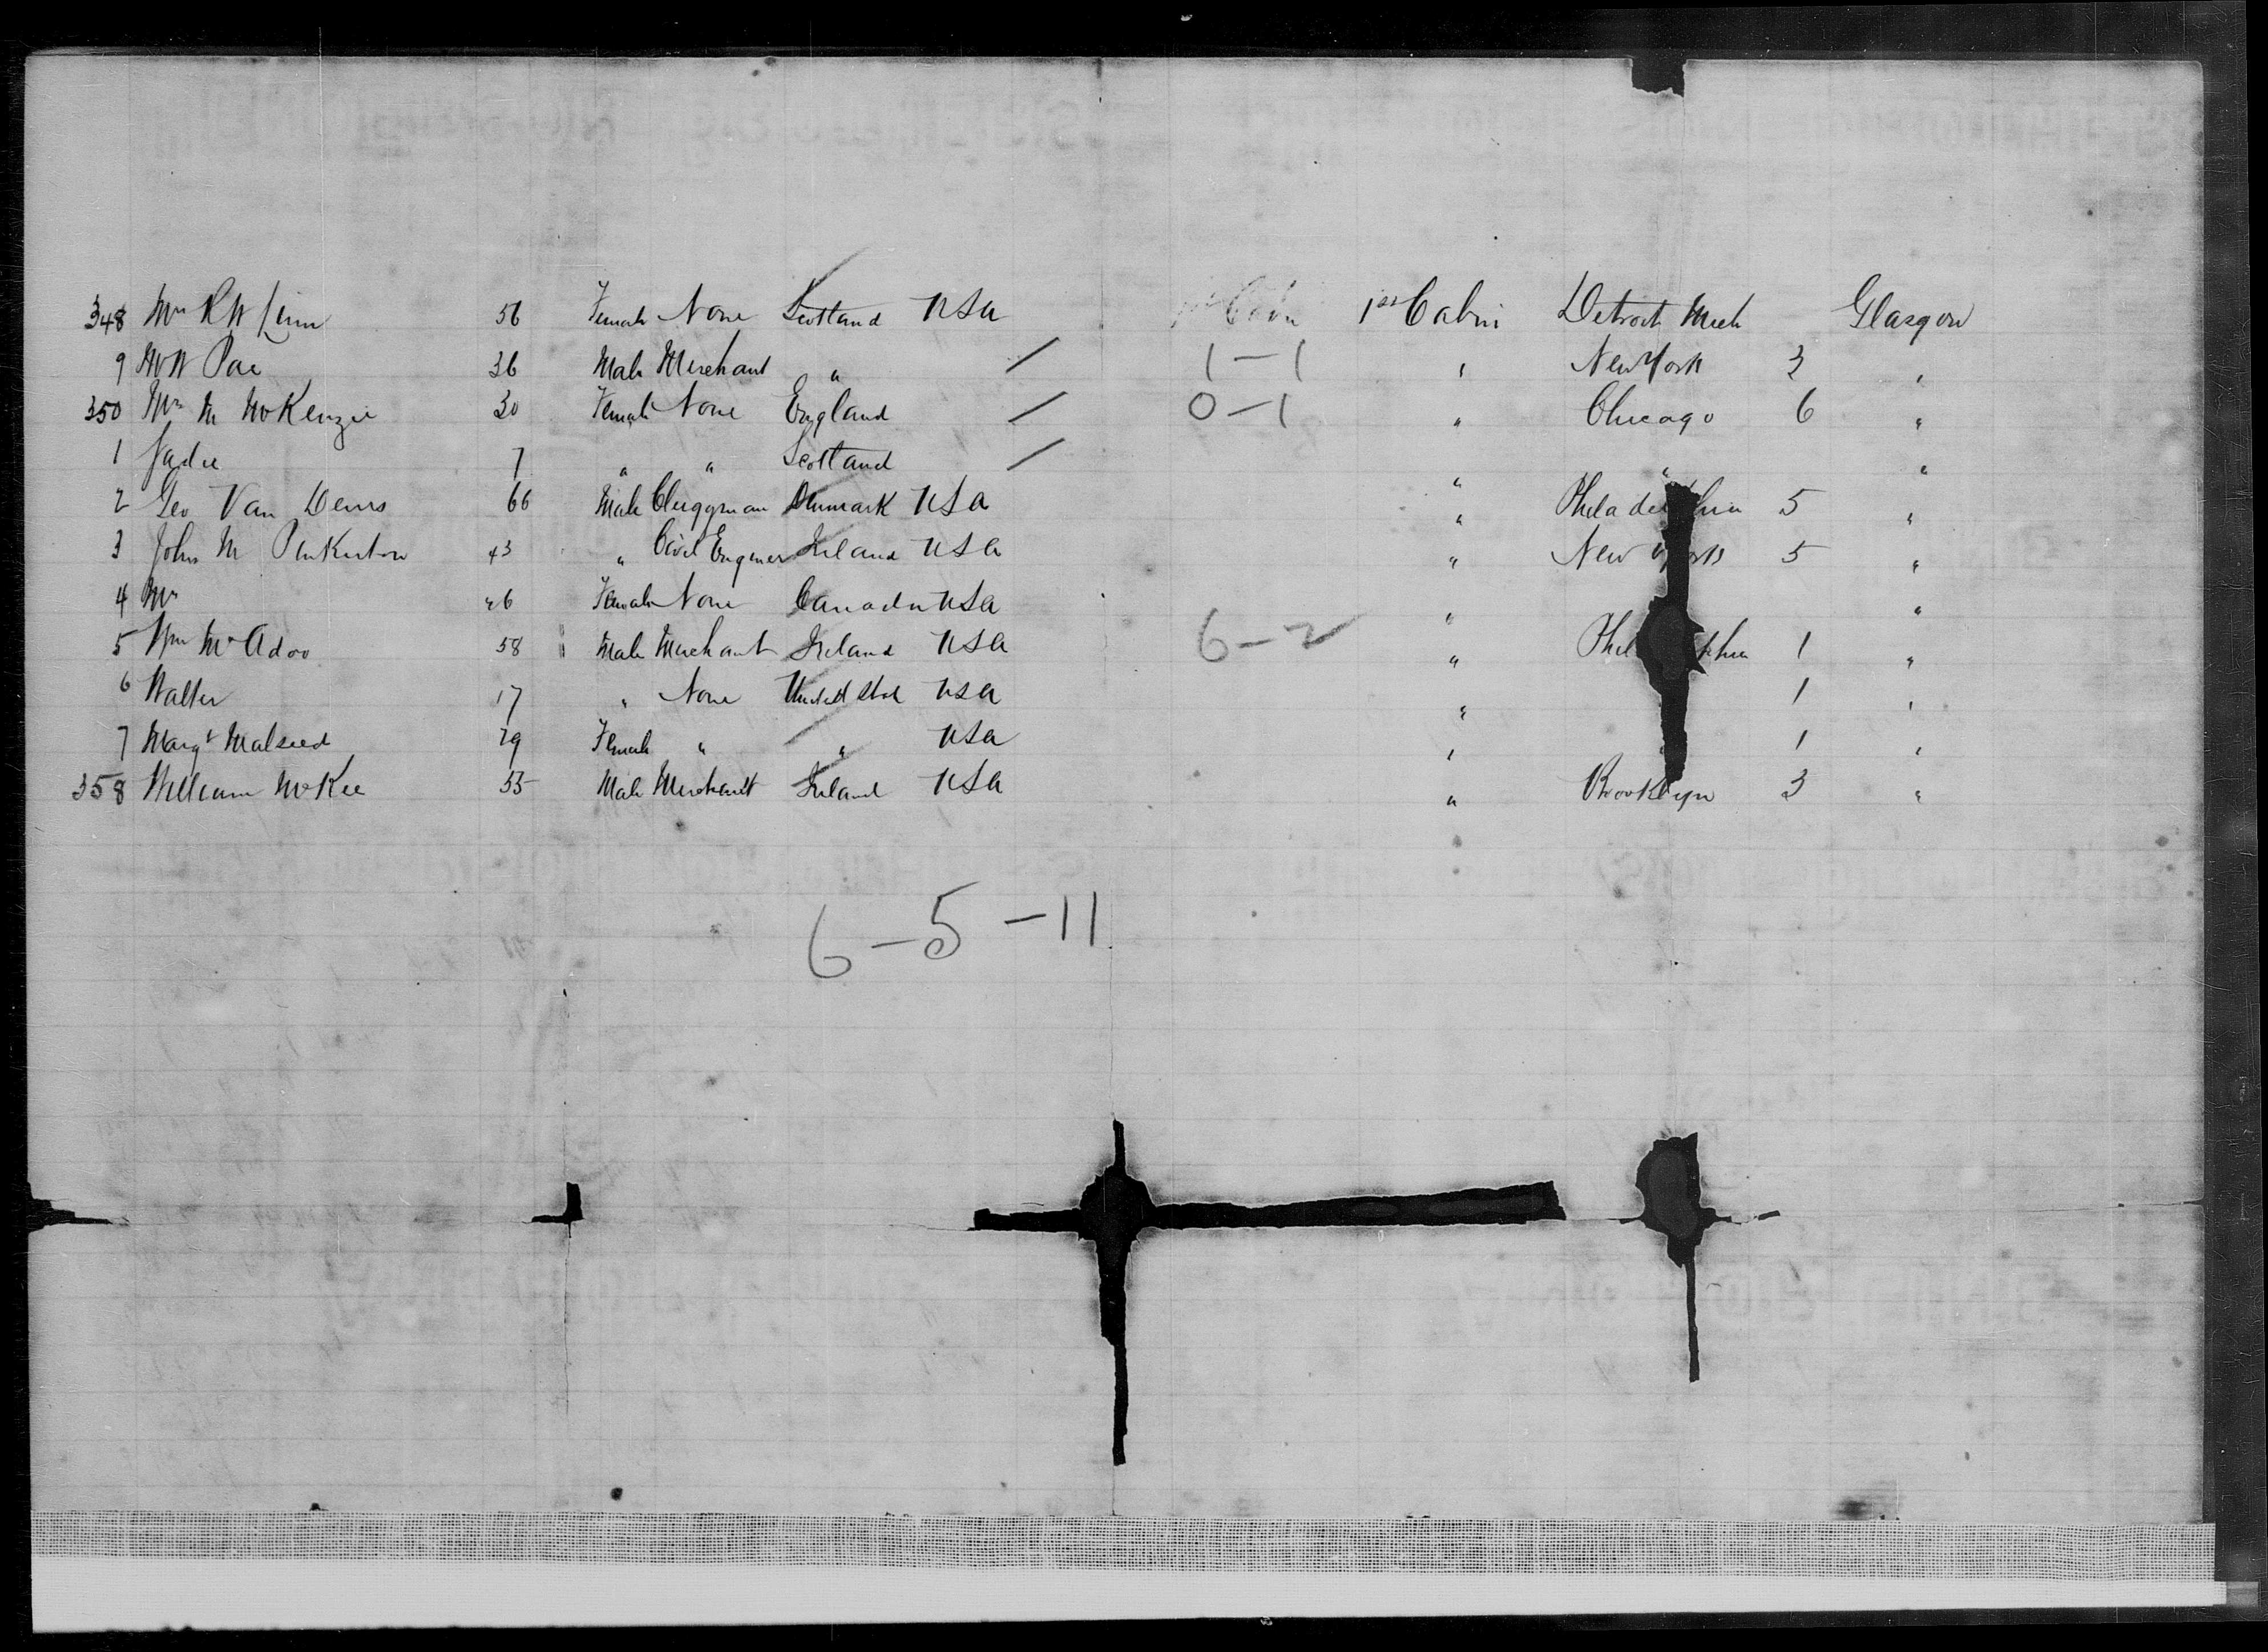 348 Mrs R W 56 Female None Scotland USA 1st Cabin 1st Cabin Detroit Mich Glasgow
9 W W Pae 36 Male Merchant " / 1-1 " New York 3 "
350 Mrs M McKenzie 30 Female None England / 0-1 " Chicago 6 "
1 Sadie 7 " " Scotland / " " "
2 Geo Van Deurs 66 Male Clergyman Denmark USA " Philadelphia 5 "
3 John M Pinkerton 43 " Civil Engineer Ireland USA " New York 5 "
4 Mrs 26 Female None Canada USA " "
5 Wm McAdoo 58 Male Merchant Ireland USA 6-2 " Phil phia 1 "
6 Walter 17 " None United State USA " 1 "
7 Margt Malseed 29 Female " " USA " 1 "
358 William McKee 55 Male Merchant Ireland USA " Brooklyn 3 "
6-5-11